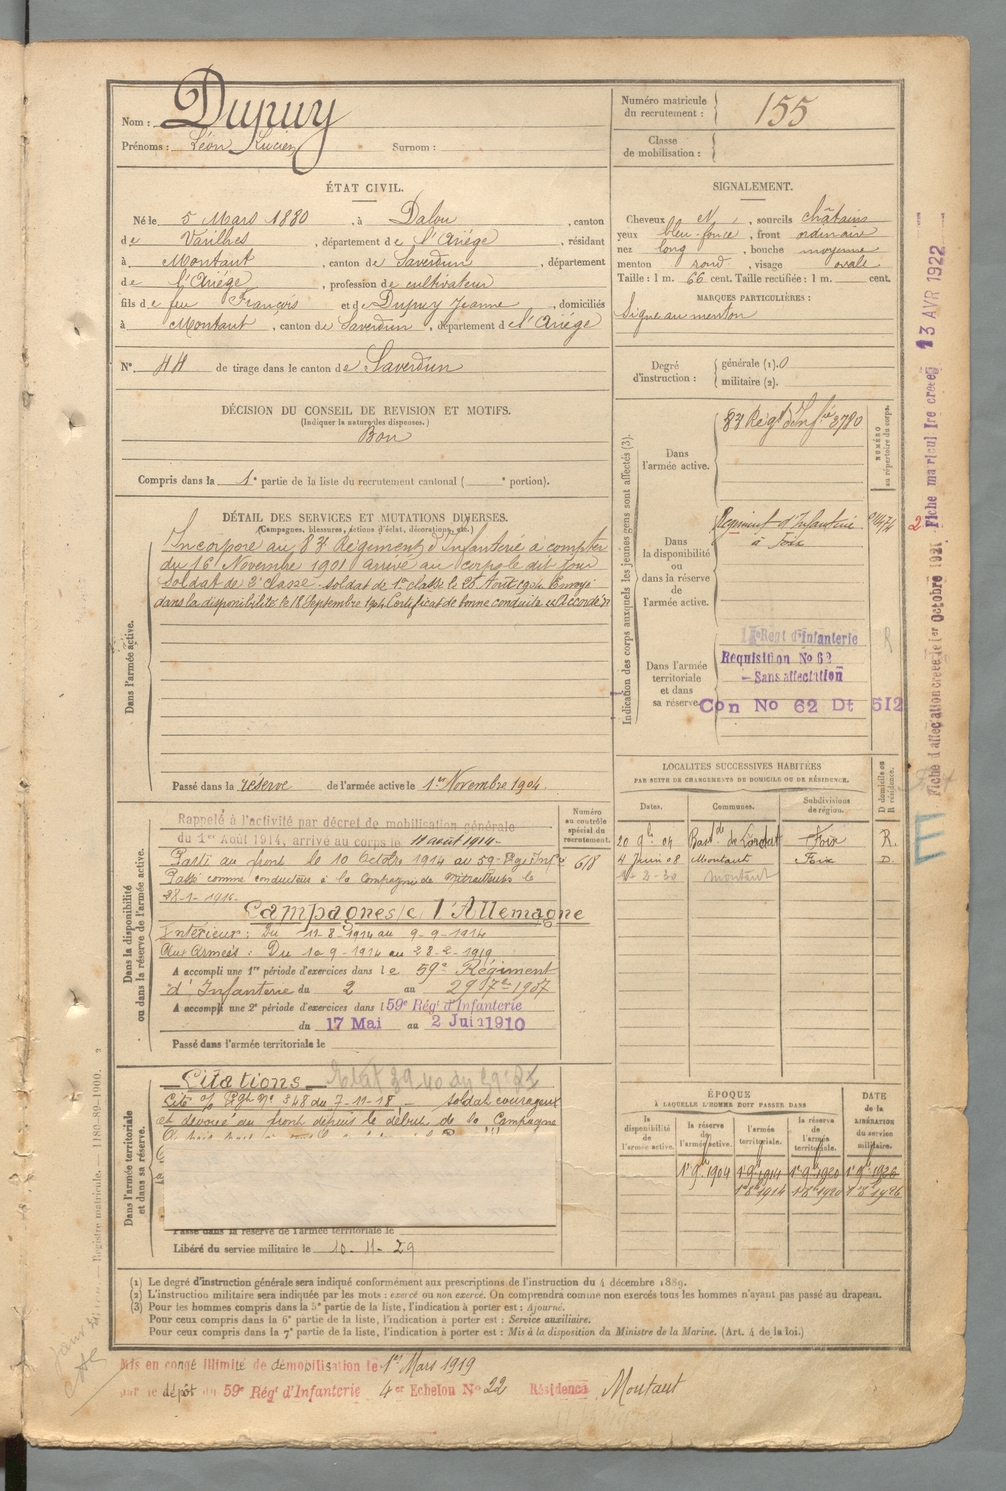 Nom : Dupuy
Prénoms : Léon Lucien Surnom :
Numéro matricule du recrutement : 155
Classe de mobilisation :
ÉTAT CIVIL.
Né le 5 Mars 1880, à Dalou, canton
de Varilhes, département de l'Ariége, résidant
à Montaut, canton de Saverdun, département
de l'Ariége, profession de cultivateur
fils de feu François et de Dupuy Jeanne, domiciliés
à Montaut, canton de Saverdun, département de l'Ariége
N° 44 de tirage dans le canton de Saverdun
SIGNALEMENT.
Cheveux N, sourcils châtains
yeux bleu-foncé, front ordinaire
nez long, bouche moyenne
menton rond, visage ovale
Taille : 1 m. 66 cent. Taille rectifiée : 1 m. cent.
MARQUES PARTICULIÈRES :
Signe au menton
Degré d'instruction : générale (1). 0
militaire (2).
DÉCISION DU CONSEIL DE REVISION ET MOTIFS.
(Indiquer la nature des dispenses.)
Bon
Compris dans la 1e partie de la liste du recrutement cantonal ( e portion).
DÉTAIL DES SERVICES ET MUTATIONS DIVERSES.
(Campagnes, blessures, actions d'éclat, décorations, etc.)
Dans l'armée active.
Incorporé au 83e Régiment d'Infanterie à compter
du 16 Novembre 1901 arrivé au corps le dit jour
Soldat de 2e classe - soldat de 1re classe le 25 Août 1904 Envoyé
dans la disponibilité le 18 Septembre 1904 Certificat de bonne conduite "Accordé"
Passé dans la réserve de l'armée active le 1er Novembre 1904.
Indication des corps auxquels les jeunes gens sont affectés (3).
NUMÉRO au répertoire du corps.
Dans l'armée active.
83e Régt d'Infie 3780
Dans la disponibilité ou dans la réserve de l'armée active.
Régiment d'Infanterie
à Foix
Dans l'armée territoriale et dans sa réserve.
Régt d'Infanterie
Requisition No 62
- Sans affectation
Con No 62 Dt 512
R
LOCALITÉS SUCCESSIVES HABITÉES
PAR SUITE DE CHANGEMENTS DE DOMICILE OU DE RÉSIDENCE.
Dates. Communes. Subdivisions de région. D domicile ou R résidence.
20 9bre 04 de Lordat Foix R.
4 Juin 08 Montaut Foix D.
2-30 Montaut
Dans la disponibilité ou dans la réserve de l'armée active.
Numéro au contrôle spécial du recrutement.
618
Rappelé à l'activité par décret de mobilisation générale
du 1er Août 1914, arrivé au corps le 11 août 1914.
Parti au front le 10 Octobre 1914 au 59e Régt Infie
Passé comme conducteur à la Compagnie de Mitrailleuses le
28-1-1916.
Campagnes c/ l'Allemagne
Intérieur : Du 11-8-1914 au 9-9-1914
Aux Armées : Du 10 9-1914 au 28-2-1919
A accompli une 1re période d'exercices dans le 59e Régiment
d'Infanterie du 2 au 29 7bre 1907
A accompli une 2e période d'exercices dans l 59e Régt d'Infanterie
du 17 Mai au 2 Juin 1910
Passé dans l'armée territoriale le
Dans l'armée territoriale et dans sa réserve.
Citations
Cité o/ Rgt n° 348 du 7-11-18 - soldat courageux
et dévoué au front depuis le début de la Campagne
Passé dans la réserve de l'armée territoriale le
Libéré du service militaire le 10-11-29
ÉPOQUE
À LAQUELLE L'HOMME DOIT PASSER DANS
DATE de la LIBÉRATION du service militaire.
la disponibilité de l'armée active. la réserve de l'armée active. l'armée territoriale. la réserve de l'armée territoriale.
1er 9bre 1904 1er 9bre 1914 1er 9bre 1920 1er 9bre 1926
1er 8bre 1914 1er 8bre 1920 1er 8bre 1926
(1) Le degré d'instruction générale sera indiqué conformément aux prescriptions de l'instruction du 4 décembre 1889.
(2) L'instruction militaire sera indiquée par les mots : exercé ou non exercé. On comprendra comme non exercés tous les hommes n'ayant pas passé au drapeau.
(3) Pour les hommes compris dans la 5e partie de la liste, l'indication à porter est : Ajourné.
Pour ceux compris dans la 6e partie de la liste, l'indication à porter est : Service auxiliaire.
Pour ceux compris dans la 7e partie de la liste, l'indication à porter est : Mis à la disposition du Ministre de la Marine. (Art. 4 de la loi.)
Mis en congé illimité de démobilisation le 1er Mars 1919
par le dépôt du 59e Régt d'Infanterie 4er Echelon No 22 Résidence Montaut
Registre matricule. 1180-89-1900.
Fiche d'affectation créée le 1er Octobre 1921 Fiche matricul Ire créée 13 AVR 1922